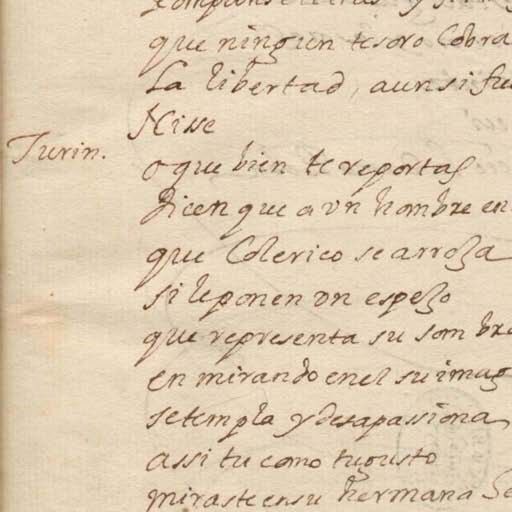 que ningun tesoro Cobra
La libertad, aun si fu
Nisse
Turin. o que bien te reportas
Dicen que a vn hombre en
que Colerico se arroxa
si le ponen vn espexo
que representa su sombra
en mirando en el su imag
se templa y desapassiona
assi tu como tu gusto
miraste en su hermana